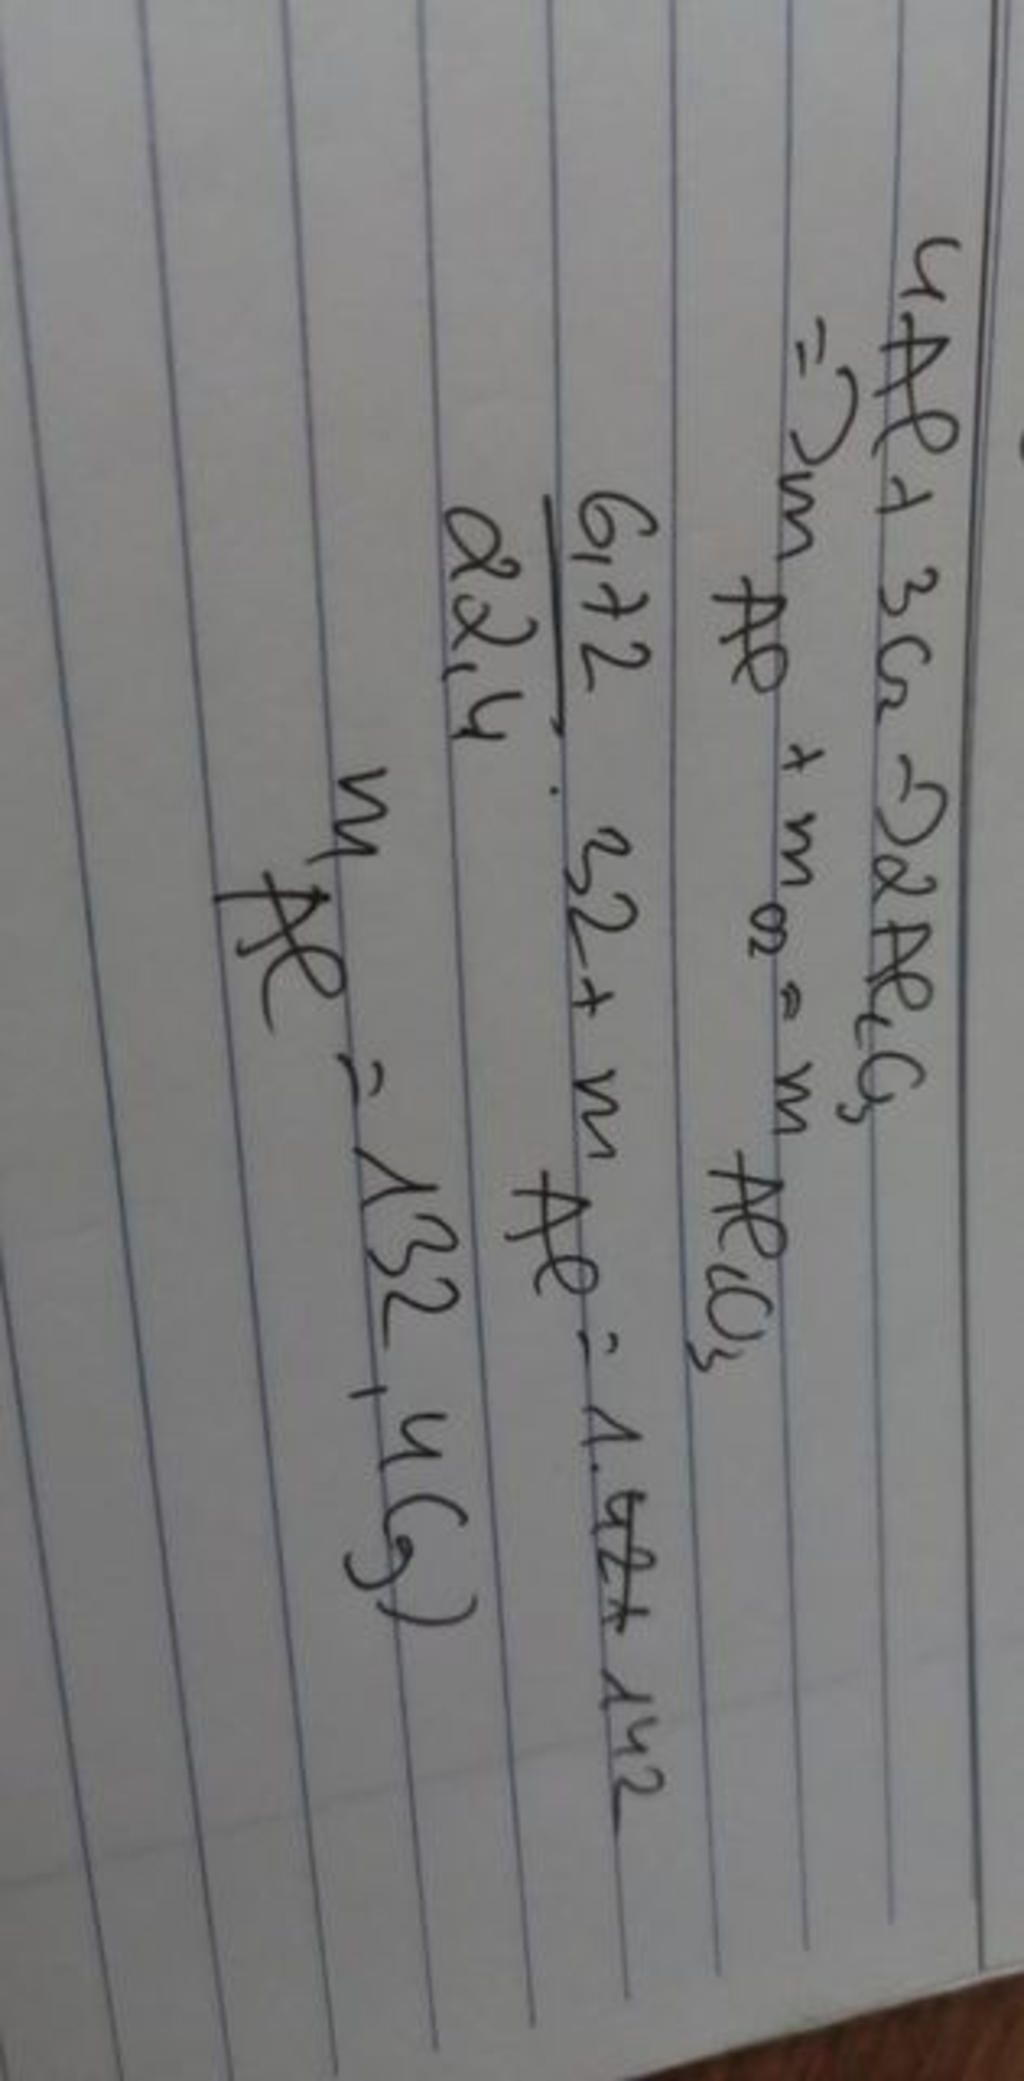 4Al + 3O2 => 2Al2O3
=> m Al + m O2 = m Al2O3
6,72 / 22,4 . 32 + m Al = 1. 142
m Al = 132,4 (g)